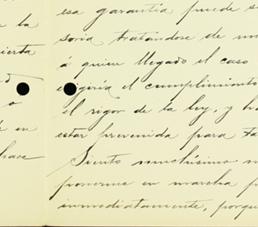 la
esa garantía puede s
soria tratándose de un
ierta
á quien llegado el caso
exigiría el cumplimiento
o
el rigor de la ley, y h
en
estar prevenida para
hace
Siento muchísimo n
ponerme en marcha p
inmediatamente, porqu